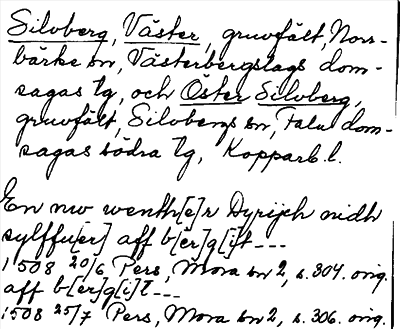 Silvberg, Väster, gruvfält, Norr-
bärke sn, Västerbergslags dom-
sagas tg, och Öster Silvberg,
gruvfält, Silvbergs sn, Falu dom-
sagas södra tg, Kopparb.l.
En nw wenth[e]r Dyrijch nidh
sylffu[er] aff b[er]g[i]t ---
1508 20/6 Pers, Mora sn 2, s. 304. orig.
aff b[er]g[i]t ---
1508 25/7 Pers, Mora sn 2, s. 306. orig.